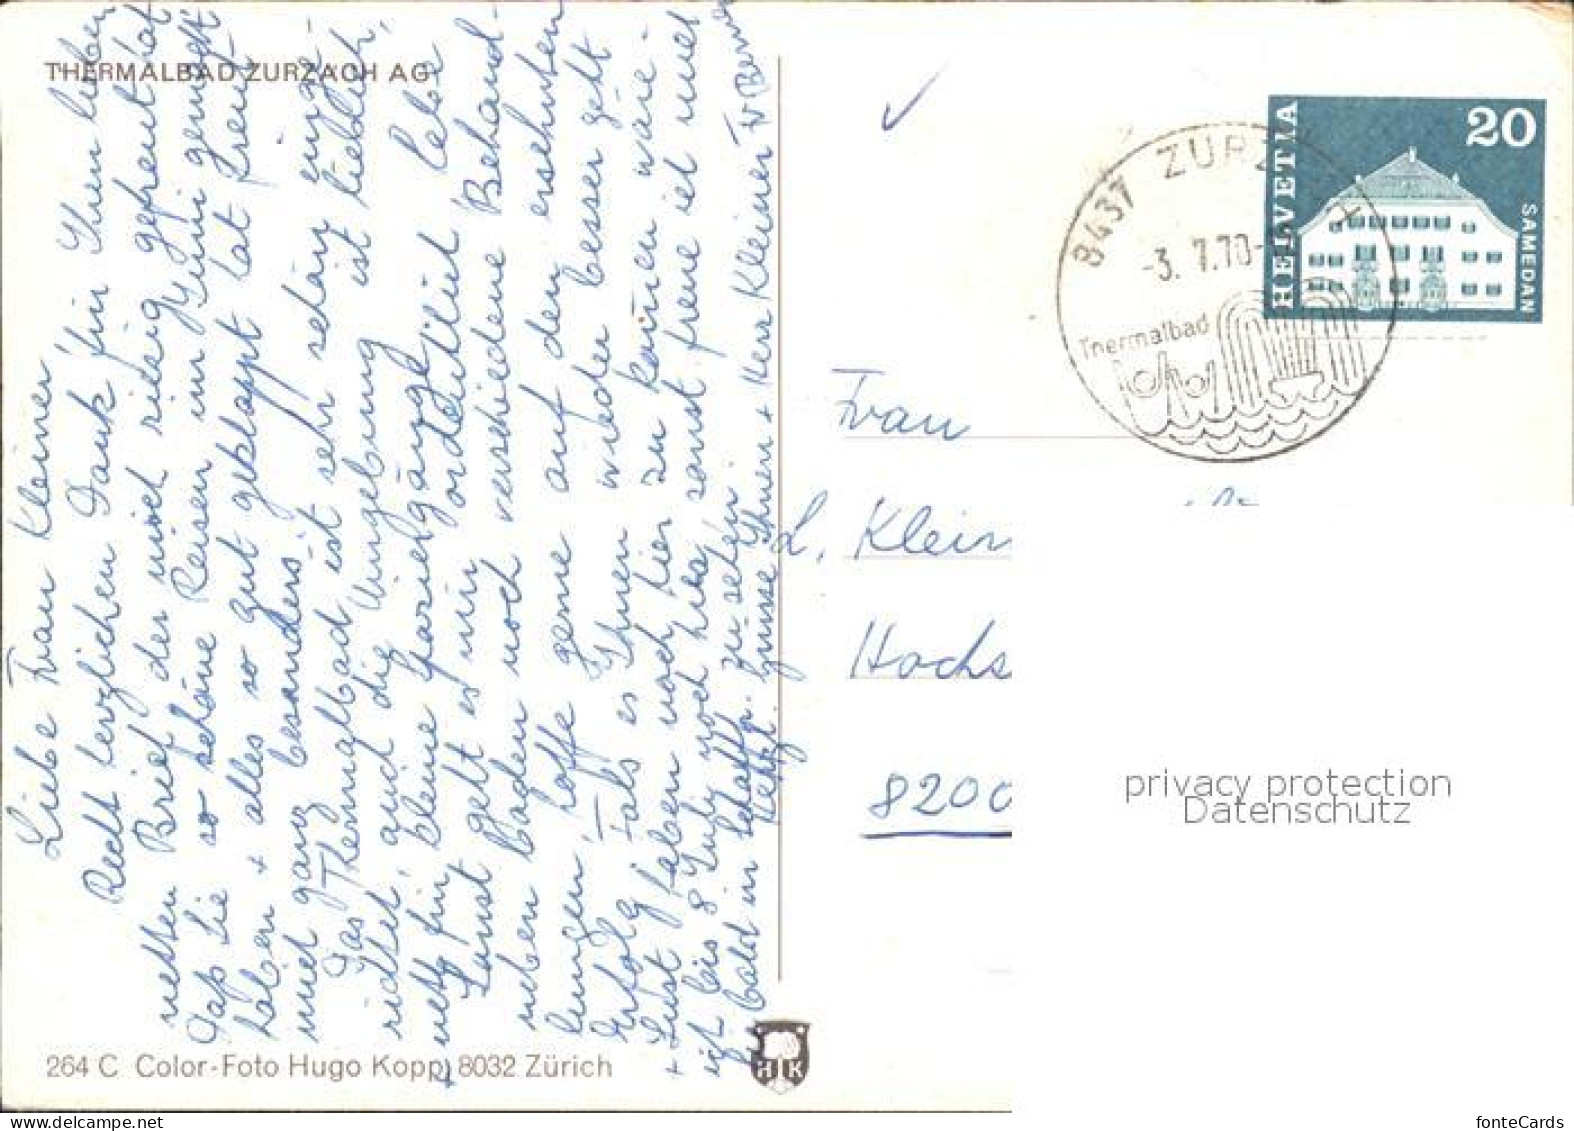 THERMALBAD ZURZACH AG
Liebe Frau Kleiner
Recht herzlichen Dank für Ihren lieben
netten Brief der mich riesig gefreut hat
Dass Sie so schöne Reisen im Juni gemacht
haben + alles so gut geklappt hat freut
mich ganz besonders.
Das Thermalbad ist sehr schön einge-
richtet, auch die Umgebung ist lieblich,
+ nett für kleine Spaziergänge.
Sonst geht es mir ordentlich habe
neben Baden noch verschiedene Behand-
lungen, hoffe gerne auf den ersehnten
Erfolg. Falls es Ihnen wieder besser geht
+ Lust haben noch hier zu kommen wäre
ich bis 8 Juli noch hier, sonst freue ich mich
Sie bald in Schaffh. zu sehen.
Herzl. Grüsse Ihnen + Herr Kleiner
264 C Color-Foto Hugo Kopp, 8032 Zürich
H K
HELVETIA
20
SAMEDAN
8437 ZURZ
-3. 7.70-
Thermalbad
Frau
L. Klein
Hochs
8200
privacy protection
Datenschutz
www.ansichtskartenversand.com
fonteCards